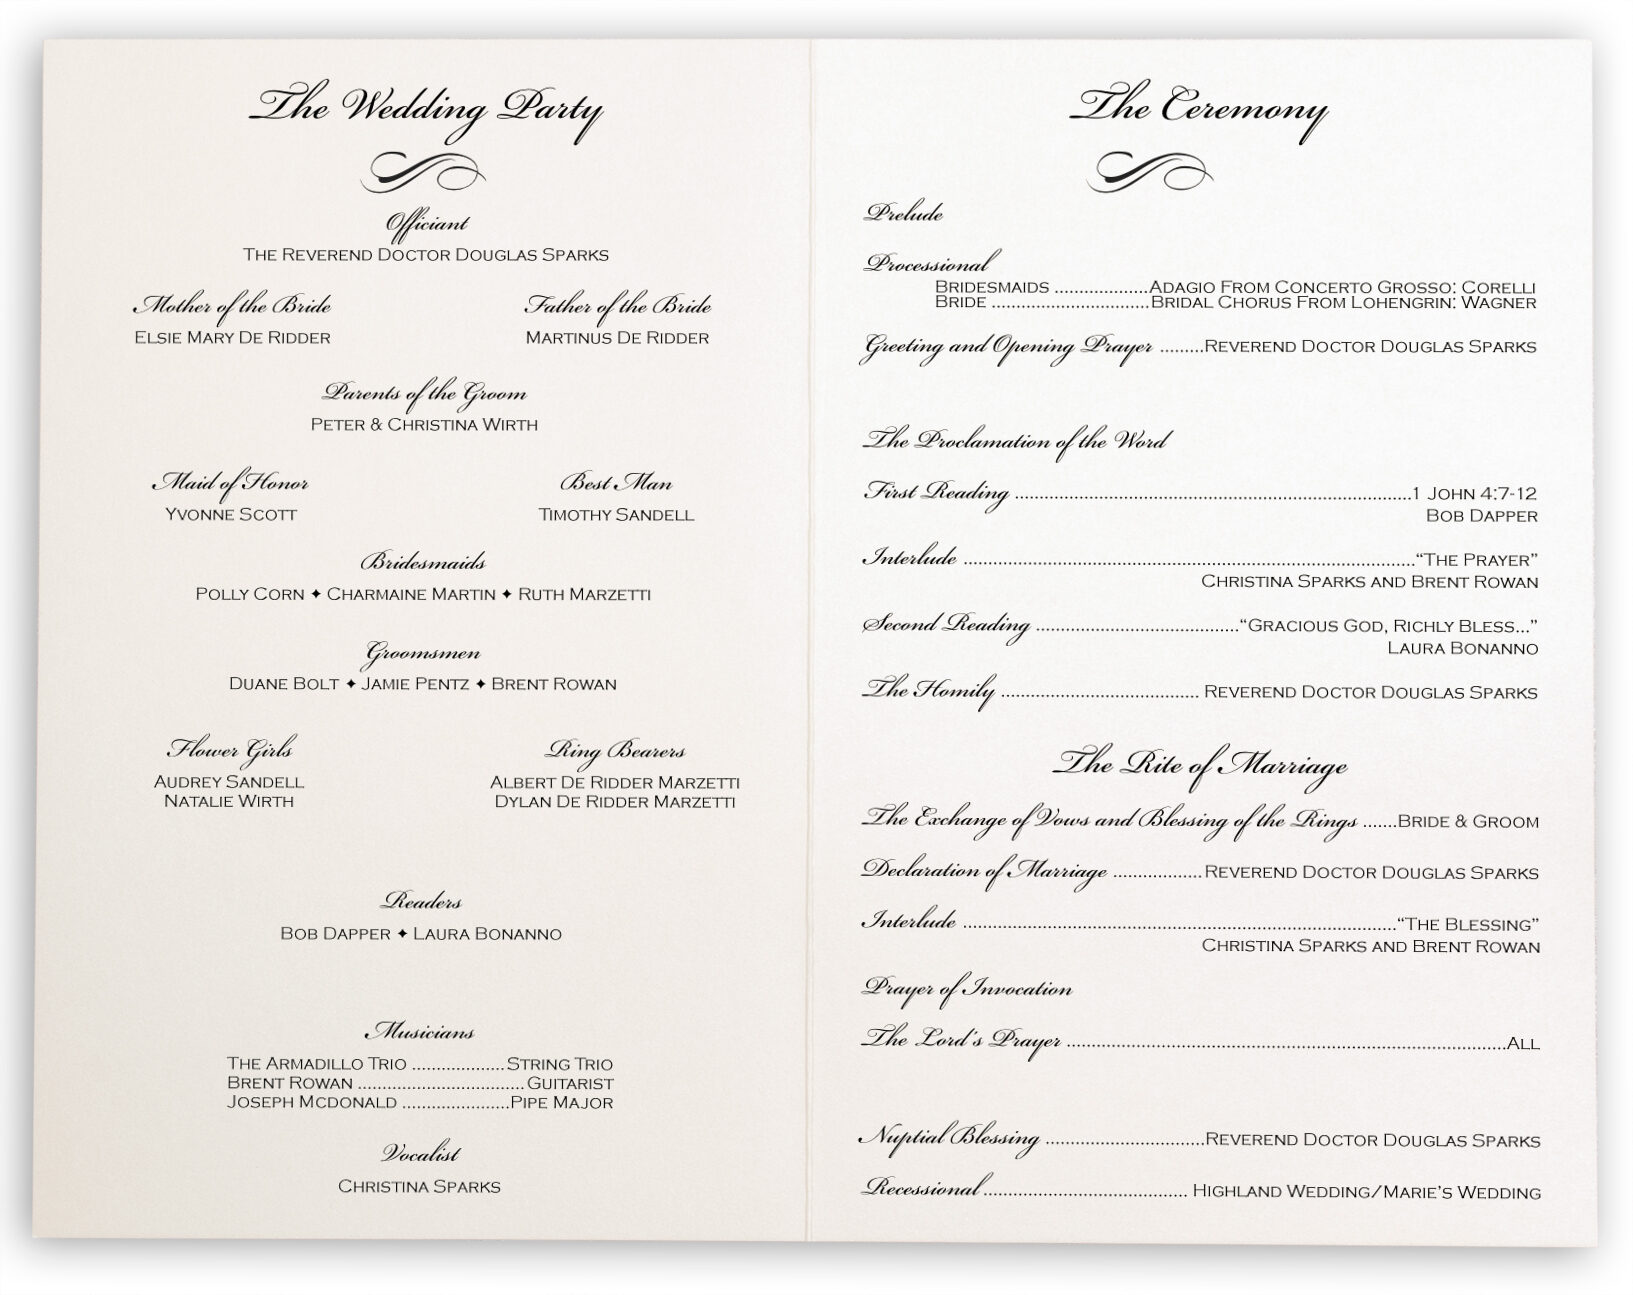 The Wedding Party
Officiant
The Reverend Doctor Douglas Sparks
Mother of the Bride
Elsie Mary De Ridder
Father of the Bride
Martinus De Ridder
Parents of the Groom
Peter & Christina Wirth
Maid of Honor
Yvonne Scott
Best Man
Timothy Sandell
Bridesmaids
Polly Corn ✦ Charmaine Martin ✦ Ruth Marzetti
Groomsmen
Duane Bolt ✦ Jamie Pentz ✦ Brent Rowan
Flower Girls
Audrey Sandell
Natalie Wirth
Ring Bearers
Albert De Ridder Marzetti
Dylan De Ridder Marzetti
Readers
Bob Dapper ✦ Laura Bonanno
Musicians
The Armadillo Trio ...................String Trio
Brent Rowan ..................................Guitarist
Joseph Mcdonald ......................Pipe Major
Vocalist
Christina Sparks
The Ceremony
Prelude
Processional
Bridesmaids ...................Adagio From Concerto Grosso: Corelli
Bride ................................Bridal Chorus From Lohengrin: Wagner
Greeting and Opening Prayer .........Reverend Doctor Douglas Sparks
The Proclamation of the Word
First Reading .................................................................................1 John 4:7-12
Bob Dapper
Interlude ............................................................................................“The Prayer”
Christina Sparks and Brent Rowan
Second Reading .........................................“Gracious God, Richly Bless...”
Laura Bonanno
The Homily ........................................ Reverend Doctor Douglas Sparks
The Rite of Marriage
The Exchange of Vows and Blessing of the Rings .......Bride & Groom
Declaration of Marriage ..................Reverend Doctor Douglas Sparks
Interlude ........................................................................................“The Blessing”
Christina Sparks and Brent Rowan
Prayer of Invocation
The Lord's Prayer ..........................................................................................All
Nuptial Blessing ................................Reverend Doctor Douglas Sparks
Recessional .......................................... Highland Wedding/Marie's Wedding